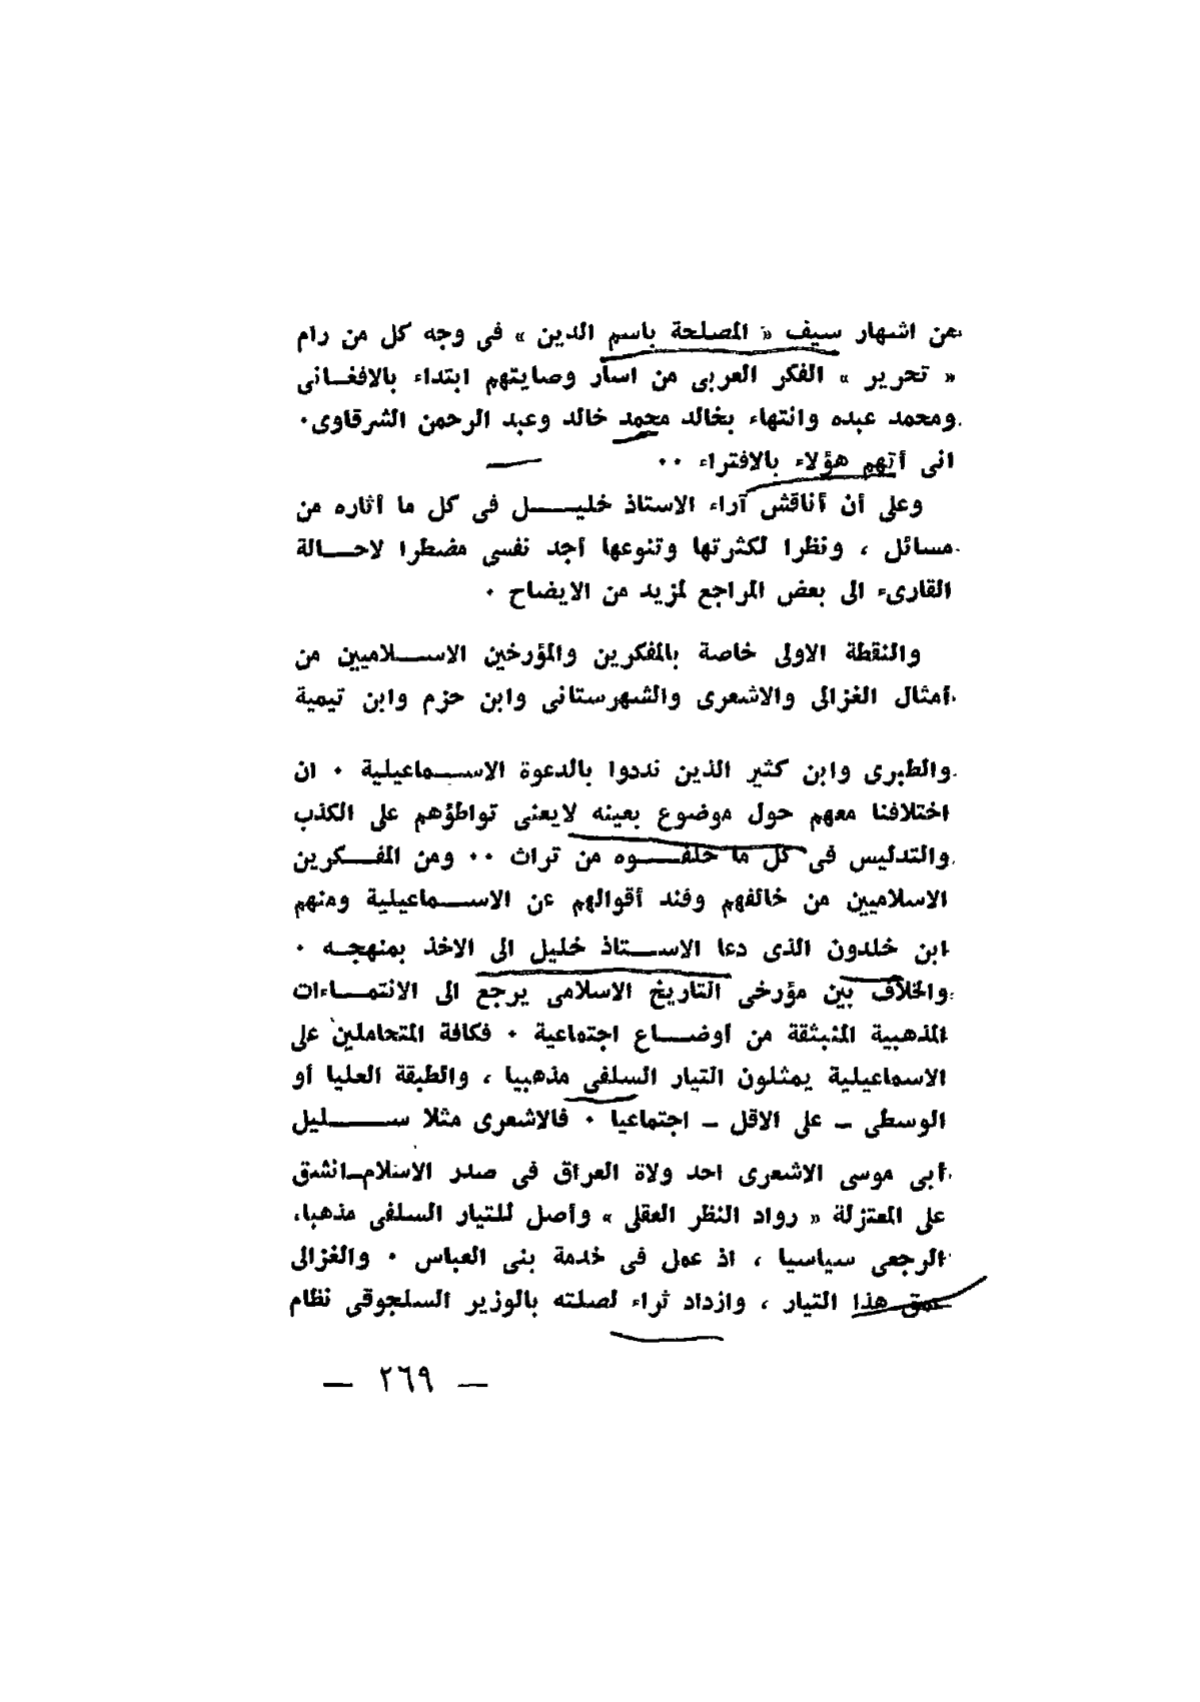 من اشهار سيف « المصلحة باسم الدين » فى وجه كل من رام
« تحرير » الفكر العربى من اسار وصايتهم ابتداء بالافغــانى
ومحمد عبده وانتهاء بخالد محمد خالد وعبد الرحمن الشرقاوى٠
انى أتهم هؤلاء بالافتراء ٠٠
وعلى أن أناقش آراء الاستاذ خليــــل فى كل ما أثاره من
مسائل ، ونظرا لكثرتها وتنوعها أجد نفسى مضطرا لاحــالة
القارىء الى بعض المراجع لمزيد من الايضاح ٠
والنقطة الاولى خاصة بالمفكرين والمؤرخين الاســـلاميين من
أمثال الغزالى والاشعرى والشهرستانى وابن حزم وابن تيمية
والطبرى وابن كثير الذين نددوا بالدعوة الاســـماعيلية ٠ ان
اختلافنا معهم حول موضوع بعينه لايعنى تواطؤهم على الكذب
والتدليس فى كل ما خلفـــوه من تراث ٠٠ ومن المفــكرين
الاسلاميين من خالفهم وفند أقوالهم عن الاســـماعيلية ومنهم
ابن خلدون الذى دعا الاســـتاذ خليل الى الاخذ بمنهجــه ٠
والخلاف بين مؤرخى التاريخ الاسلامى يرجع الى الانتمــاءات
المذهبية المنبثقة من أوضــاع اجتماعية ٠ فكافة المتحاملين على
الاسماعيلية يمثلون التيار السلفى مذهبيا ، والطبقة العليا أو
الوسطى ـ على الاقل ـ اجتماعيا ٠ فالاشعرى مثلا ســــليل
أبى موسى الاشعرى احد ولاة العراق فى صدر الاسلام-انشق
على المعتزلة « رواد النظر العقلى » وأصل للتيار السلفى مذهبا،
الرجعى سياسيا ، اذ عمل فى خدمة بنى العباس ٠ والغزالى
عمق هذا التيار ، وازداد ثراء لصلته بالوزير السلجوقى نظام
— ٢٦٩ —